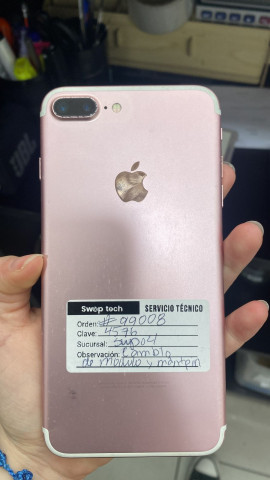 JBL
Swop tech SERVICIO TÉCNICO
Orden: #99008
Clave: 4596
Sucursal: Supo4
Observación: Cambio
de modulo y mantero